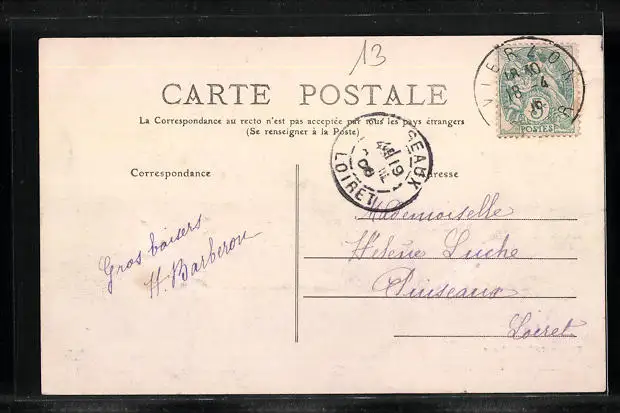 13
CARTE POSTALE
La Correspondance au recto n'est pas acceptée par tous les pays étrangers
(Se renseigner à la Poste)
Correspondance
Adresse
VIERZON
18 4
POSTES
5
SEAUX
19
06
LOIRET
Gros baisers
H. Barberon
Mademoiselle
Hélène Luche
Puiseaux
Loiret